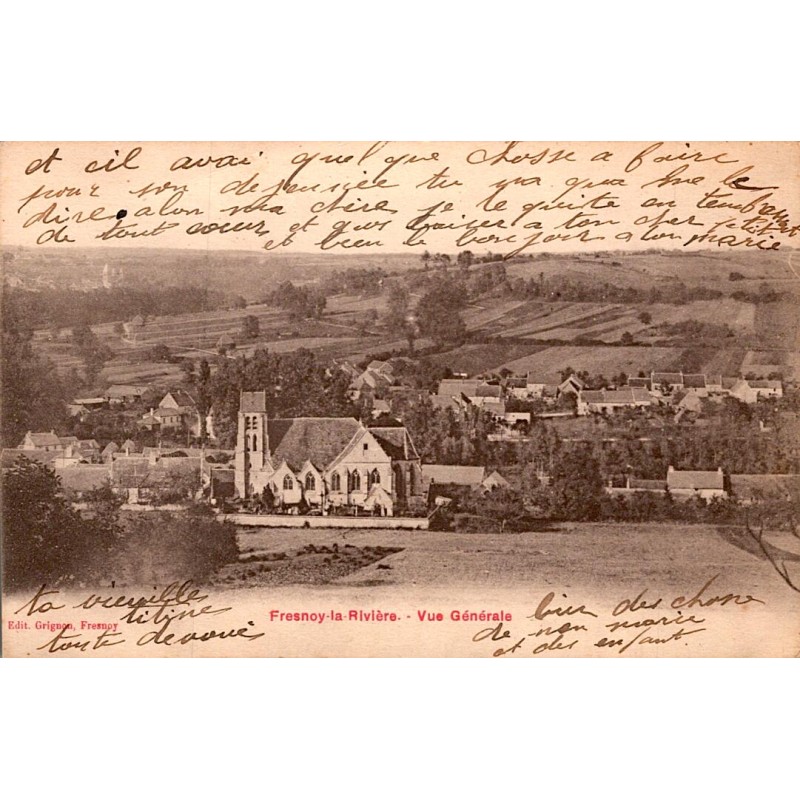 et cil avai quel que chosse a faire
pour son dejeuiée tu ora qua me le
dire alon ma chère je te quiste en
de tout cœur et qus baiser a ton cher petit
et bien le bonjour a ton marie
Fresnoy-la-Rivière. - Vue Générale
Edit. Grignon, Fresnoy
ta vieuille
titine
toute devoué
bien des chose
de mon marie
et des enfant.